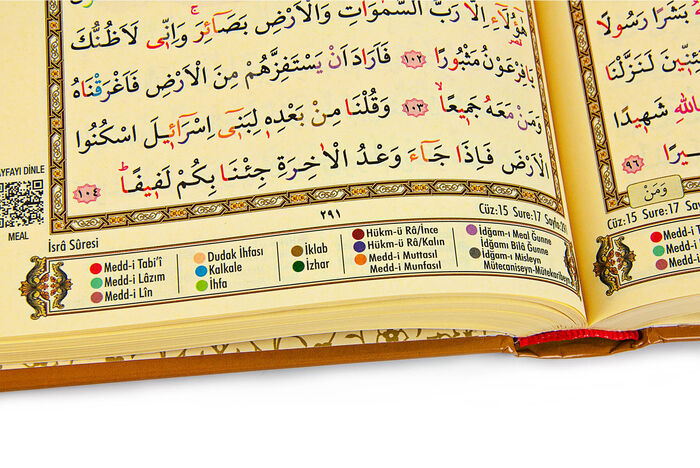 هٰٓؤُ۬لَٓاءِ اِلَّا رَبُّ السَّمٰوَاتِ وَالْاَرْضِ بَصَٓائِرَۚ وَاِنّ۪ي لَاَظُنُّكَ
يَا فِرْعَوْنُ مَثْبُورًا ١٠٢ فَاَرَادَ اَنْ يَسْتَفِزَّهُمْ مِنَ الْاَرْضِ فَاَغْرَقْنَاهُ
وَمَنْ مَعَهُ جَم۪يعًاۙ ١٠٣ وَقُلْنَا مِنْ بَعْدِه۪ لِبَن۪ٓي اِسْرَٓائ۪لَ اسْكُنُوا
الْاَرْضَ فَاِذَا جَٓاءَ وَعْدُ الْاٰخِرَةِ جِئْنَا بِكُمْ لَف۪يفًاۜ ١٠٤
AYFAYI DİNLE
MEAL
٢٩١
Cüz:15 Sure:17 Sayfa:291
İsrâ Sûresi
Medd-i Tabi'î
Medd-i Lâzım
Medd-i Lîn
Dudak İhfası
Kalkale
İhfa
İklab
İzhar
Hükm-ü Râ/İnce
Hükm-ü Râ/Kalın
Medd-i Muttasıl
Medd-i Munfasıl
İdğam-ı Meal Ğunne
İdğamı Bilâ Ğunne
İdğam-ı Misleyn
Mütecaniseyn-Mütekaribeyn
بَشَرًا رَسُولًا
لَنَزَّلْنَا
شَه۪يدًا
٩٦
وَمَنْ
Cüz:15 Sure:17
Medd-i
Medd-i
Medd-i